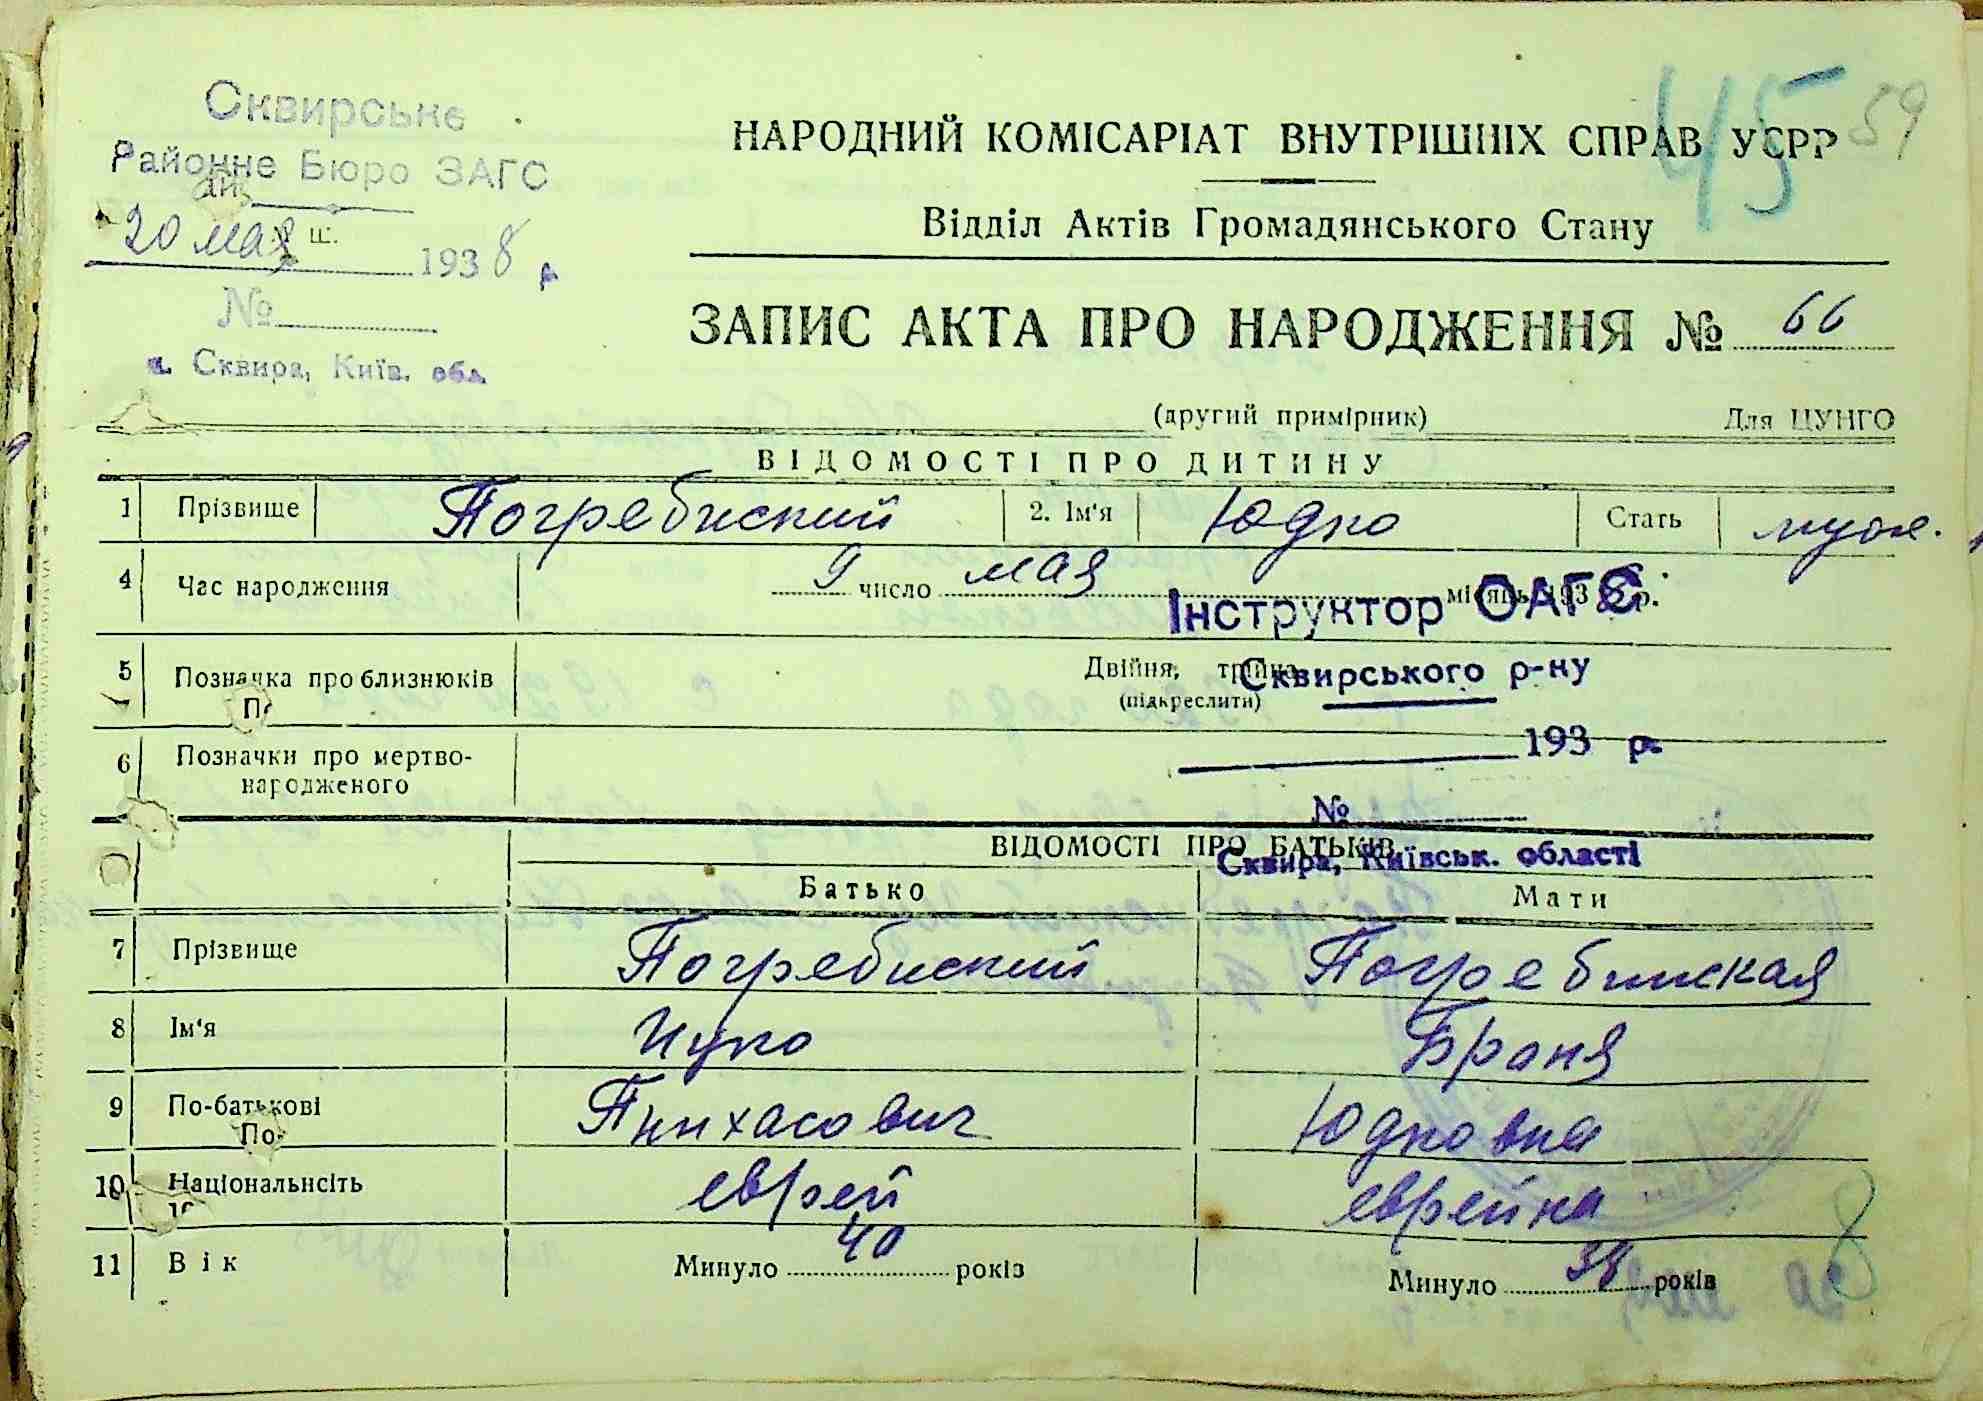 Сквирське
Районне Бюро ЗАГС
20 мая 1938 р.
№
м. Сквира, Київ. обл.
45 59
НАРОДНИЙ КОМІСАРІАТ ВНУТРІШНІХ СПРАВ УСРР
Відділ Актів Громадянського Стану
ЗАПИС АКТА ПРО НАРОДЖЕННЯ № 66
(другий примірник) Для ЦУНГО
ВІДОМОСТІ ПРО ДИТИНУ
1 Прізвище Погребиский 2. Ім'я Юдко Стать муж.
4 Час народження 9 число мая місяць 1938 р.
Інструктор ОАГС
5 Позначка про близнюків Двійня, трійня
(підкреслити)
Сквирського р-ну
193 р.
6 Позначки про мертво-
народженого
№
ВІДОМОСТІ ПРО БАТЬКІВ
Сквира, Київськ. області
Батько Мати
7 Прізвище Погребиский Погребиская
8 Ім'я Нуко Броня
9 По-батькові Пинхасович Юдковна
10 Національність еврей еврейка
11 Вік Минуло 40 років Минуло 38 років
8